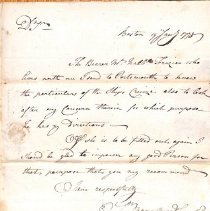 Boston
D Sir
The Bearer Mr
time with me I send to Portsmouth to know
the particulars of the Ships Cruize also to look
after my Concerns therein for which purpose
he has my Directions
If she is to be fitted out again I
shall be glad to improve any good Person for
that purpose that you may recommend
I am respectfully